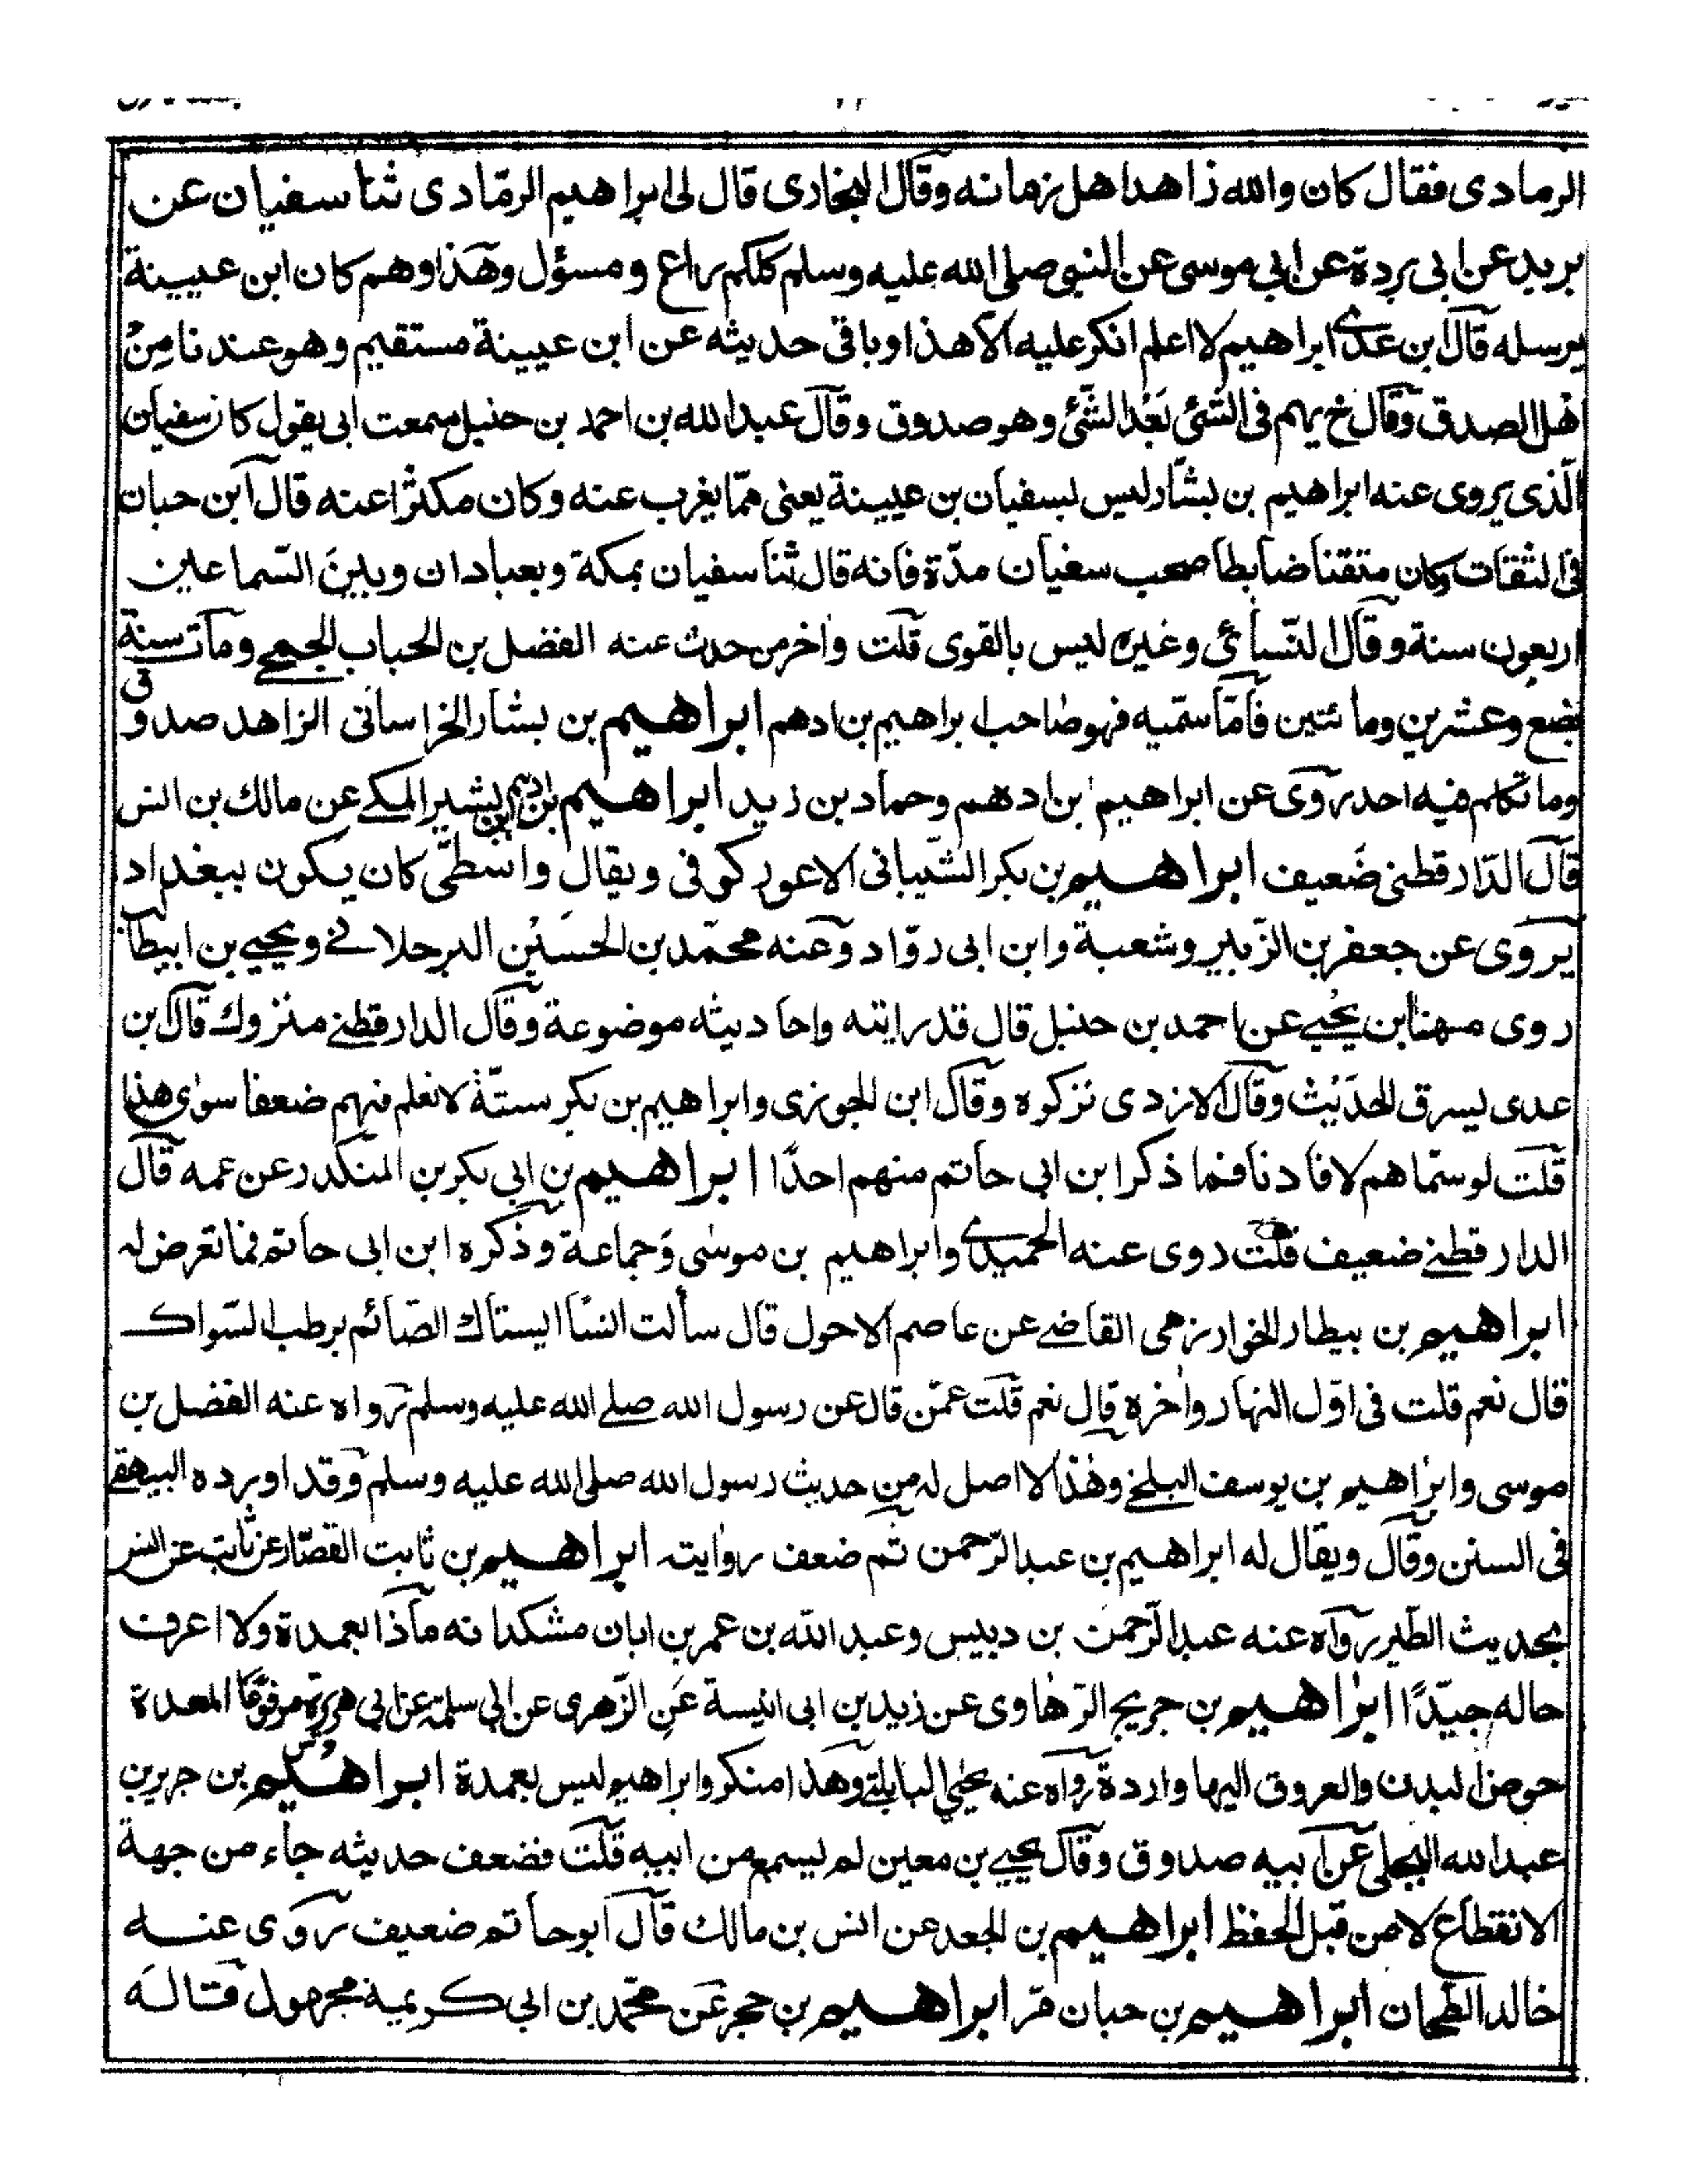 الرمادى فقال كان والله زاهدا هل زمانه وقال البخارى قال لى ابراهيم الرمّادى ثنا سفيان عن
بريد عن ابى بردة عن ابى موسى عن النبى صلى الله عليه وسلم كلكم راع ومسؤل وهذا وهم كان ابن عيينة
يرسله قال ابن عدى ابراهيم لا اعلم انكر عليه الا هذا وباقى حديثه عن ابن عيينة مستقيم وهو عندنا من
اهل الصدق وقال خ يهم فى الشئ بعد الشئ وهو صدوق وقال عبد الله بن احمد بن حنبل سمعت ابى يقول كان سفيان
الّذى يروى عنه ابراهيم بن بشّار ليس بسفيان بن عيينة يعنى ممّا يغرب عنه وكان مكثرًا عنه قال ابن حبان
فى الثقات وكان متقنا ضابطا صحب سفيان مدّة فانه قال ثنا سفيان بمكة وبعبادان وبين السّماعين
اربعون سنة وقال النّسائى وغيره ليس بالقوى قلت واخر من حدث عنه الفضل بن الحباب الجمحى ومات سنة
بضع وعشرين ومائتين فامّا سميّه فهو صاحب ابراهيم بن ادهم ابراهيم بن بشار الخراسانى الزاهد صدوق
وما تكلم فيه احد روى عن ابراهيم بن ادهم وحماد بن زيد ابراهيم بن بشير المكى عن مالك بن انس
قال الدّارقطنى ضَعيف ابراهيم بن بكر الشّيبانى الاعور كوفى ويقال واسطىّ كان يكون ببغداد
يروى عن جعفر بن الزبير وشعبة وابن ابى روّاد وعنه محمّد بن الحسَين البرجلانى ويحيى بن ابيطالب
روى مهنا بن يحيى عن احمد بن حنبل قال قد رايته واحاديثه موضوعة وقال الدارقطنى متروك قال ابن
عدى يسرق الحديث وقال الازدى تركوه وقال ابن الجوزى وابراهيم بن بكر ستّة لا نعلم فيهم ضعفا سوى هذا
قلت لو سمّاهم لافادنا فما ذكر ابن ابى حاتم منهم احدًا ابراهيم بن ابى بكر بن المنكدر عن عمه قال
الدارقطنى ضعيف قلت روى عنه الحميدى وابراهيم بن موسى وجماعة وذكره ابن ابى حاتم فما تعرض له
ابراهيم بن بيطار الخوارزمى القاضى عن عاصم الاحول قال سألت انسًا ايستاك الصّائم برطب السّواك
قال نعم قلت فى اوّل النهار واخره قال نعم قلت عمّن قال عن رسول الله صلى الله عليه وسلم رواه عنه الفضل بن
موسى وابراهيم بن يوسف البلخى وهذا لا اصل له من حديث رسول الله صلى الله عليه وسلم وقد اورده البيهقى
فى السنن وقال ويقال له ابراهيم بن عبد الرّحمن ثم ضعف روايته ابراهيم بن ثابت القصّار عن ثابت عن انس
بحديث الطير رواه عنه عبد الرّحمن بن دبيس وعبد الله بن عمر بن ابان مشكدانه ماذا بعمدة ولا اعرف
حاله جيّدًا ابراهيم بن جريج الرّهاوى عن زيد بن ابى انيسة عن الزّهرى عن ابى سلمة عن ابى هريرة مرفوعًا المعدة
حوض البدن والعروق اليها واردة رواه عنه يحيى البابلتى وهذا منكر وابراهيم ليس بعمدة ابراهيم بن جرير بن
عبد الله البجلى عن ابيه صدوق وقال يحيى بن معين لم يسمع من ابيه قلت فضعف حديثه جاء من جهة
الانقطاع لا من قبل الحفظ ابراهيم بن الجعد عن انس بن مالك قال ابو حاتم ضعيف روى عنه
خالد الطحان ابراهيم بن حبان مّر ابراهيم بن حجر عن محمّد بن ابى كريمة مجهول قاله